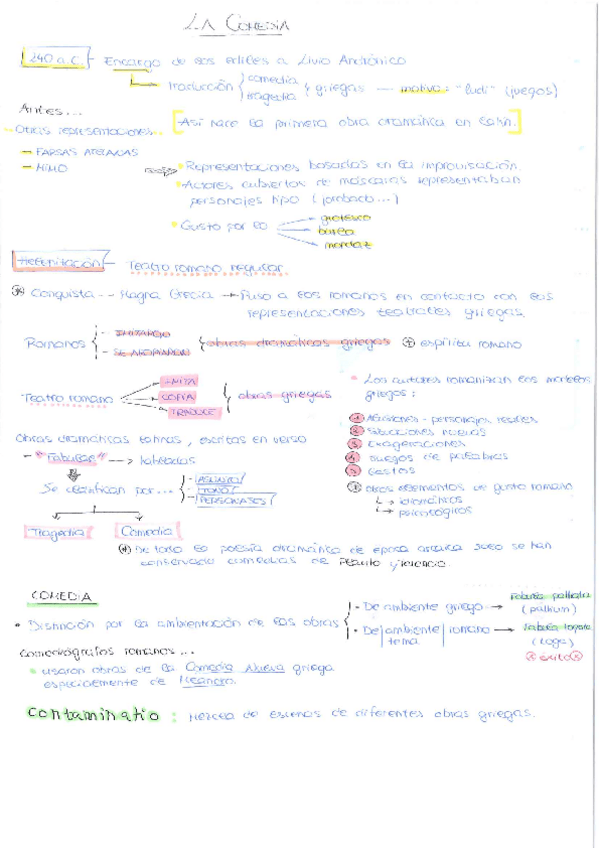 LA COMEDIA
240 a.C. - Encargo de los ediles a Livio Andrónico
traducción { comedia tragedia } griegas --- motivo: "ludi" (juegos)
Antes...
[Así nace la primera obra dramática en latín.]
Otras representaciones...
- FARSAS ATELANAS
- MIMO
• Representaciones basadas en la improvisación.
• Actores cubiertos de máscaras representaban
personajes tipo (jorobado...)
• Gusto por lo
grotesco
burla
mordaz
Helenización - Teatro romano regular
* Conquista -- Magna Grecia → Puso a los romanos en contacto con las
representaciones teatrales griegas.
Romanos
- IMITARON
- SE APROPIARON
obras dramáticas griegas + espíritu romano
Teatro romano
IMITA
COPIA
TRADUCE
obras griegas
• Los autores romanizan los modelos
griegos:
1 Alusiones - personajes reales
2 Situaciones nuevas
3 Exageraciones
4 Juegos de palabras
5 Gestos
+ otros elementos de gusto romano
↳ idiomáticos
↳ psicológicos
Obras dramáticas latinas, escritas en verso
- "Fabulae" --→ habladas
Se clasifican por...
- ASUNTO /
- TONO /
- PERSONAJES /
Tragedia
Comedia
* De toda la poesía dramática de época arcaica solo se han
conservado comedias de Plauto y Terencio.
COMEDIA
• Distinción por la ambientación de las obras
- De ambiente griego → fabula palliata
(pallium)
- De ambiente / tema romano → fabula togata
(toga)
* éxito *
Comediógrafos romanos...
• usaron obras de la Comedia Nueva griega
especialmente de Menandro.
Contaminatio : Mezcla de escenas de diferentes obras griegas.